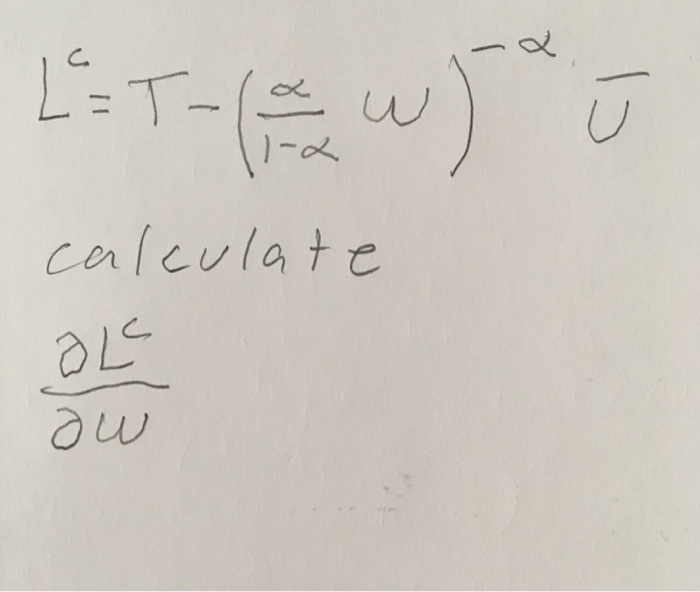 L^c = T - (α/(1-α) w)^{-α} Ū
calculate
∂L^c/∂w